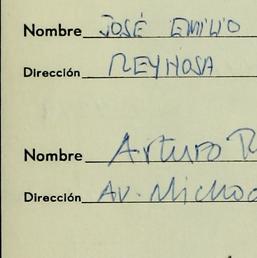 Nombre JOSÉ EMILIO
Dirección REYNOSA
Nombre Arturo R
Dirección Av. Michoa